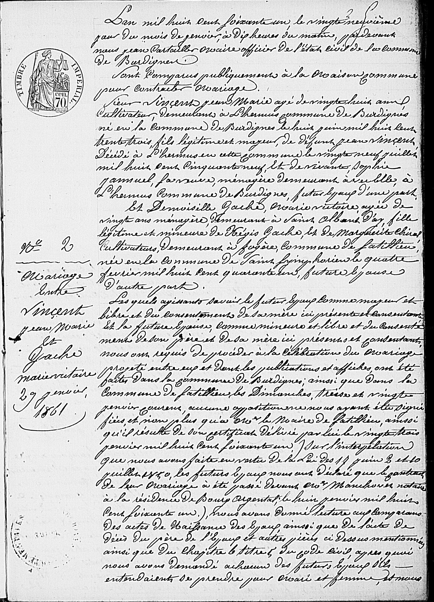 L'an mil huit cent soixante un le vingt neuvième
jour du mois de janvier, à dix heures du matin, par devant
nous jean maire officier de l'état civil de la Commune
de Burdignes
Sont comparus publiquement à la maison commune
pour contracter mariage.
Sieur Vincent jean Marie agé de vingt huit ans
Cultivateur, demeurant à L'hermus commune de Burdignes
né en la commune de Burdignes le huit juin mil huit cent
trente trois, fils légitime et majeur, de défunt jean Vincent,
Décédé à L'hermus en cette commune le vingt neuf juillet
mil huit cent cinquante neuf, et de vivante Sophie
sa veuve, ménagère demeurant à
L'hermus Commune de Burdignes, futur époux d'une part
Et Demoiselle Gache, Marie victoire agée de
vingt ans ménagère demeurant à Saint Alban d'ay, fille
légitime et mineure de Régis Gache, et de Marguerite
Cultivateurs, demeurant à Commune de Satillieu,
née en la Commune de Saint Symphorien le quatre
février mil huit cent quarante un, future épouse
d'autre part.
Lesquels agissants savoir le futur époux comme majeur et
libre et du consentement de sa mère ici présente et consentant
et la future épouse, comme mineure et libre et du consente
ment de son père et de sa mère ici présents et consentant,
nous ont requis de procéder à la célébration du mariage
projeté entre eux et dont les publications et affiches, ont été
faites dans la Commune de Burdignes; ainsi que dans la
Commune de Satillieu, les Dimanches treize et vingt
janvier courant, aucune opposition ne nous ayant été signi
fiées et non plus qu'à Mr le Maire de Satillieu, ainsi
qu'il résulte de son certificat délivré par lui le vingt
janvier mil huit cent soixante un / Sur l'interpellation
que nous avons faite en vertu de la loi des 17 juin 3 et 10
juillet 1850, les futurs époux nous ont déclaré que le contrat
de leur mariage à été passé devant Me notaire
à la résidence de Bourg Argental, le huit janvier mil huit
cent soixante un / Nous avons donné lecture aux comparans
des actes de Naissance des époux, ainsi que de l'acte de
décès du père de l'époux et autres pièces ci dessus mentionnées
ainsi que du Chapitre 6 titre 5 du code Civil, après quoi
nous avons demandé à chacun des futurs époux s'ils
entendaient se prendre pour mari et femme et nous
TIMBRE IMPERIAL
70
No 2
Mariage
Entre
Vincent
jean Marie
et
Gache
marie victoire
29 janvier,
1861